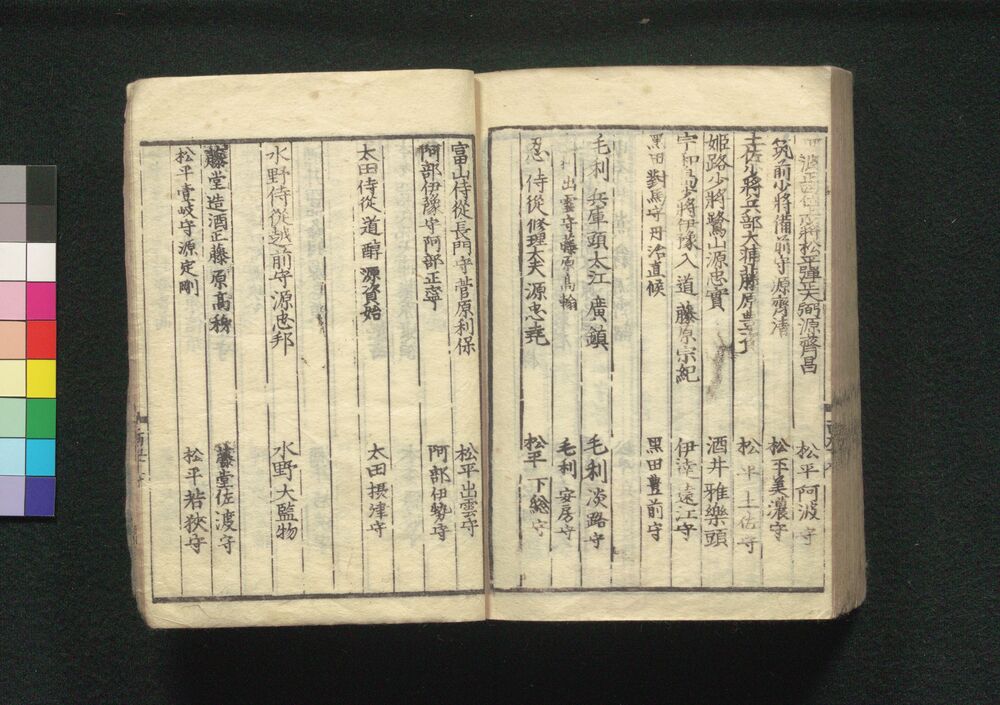 阿波中將松平彈正大弼源齊昌 松平阿波守
筑前少將備前守源齊清 松平美濃守
土佐少將兵部大輔藤原豊資 松平土佐守
姫路少將鷺山源忠實 酒井雅樂頭
宇和島少將伊豫入道藤原宗紀 伊達遠江守
黒田對馬守丹治直候 黒田豊前守
毛利兵庫頭大江廣鎮 毛利淡路守
出雲守藤原高翰 毛利安房守
忍侍從修理大夫源忠堯 松平下総守
富山侍從長門守菅原利保 松平出雲守
阿部伊豫守阿部正寧 阿部伊勢守
太田侍從道醇源資始 太田摂津守
水野侍從越前守源忠邦 水野大監物
藤堂造酒正藤原高秭 藤堂佐渡守
松平壹岐守源定剛 松平若狹守